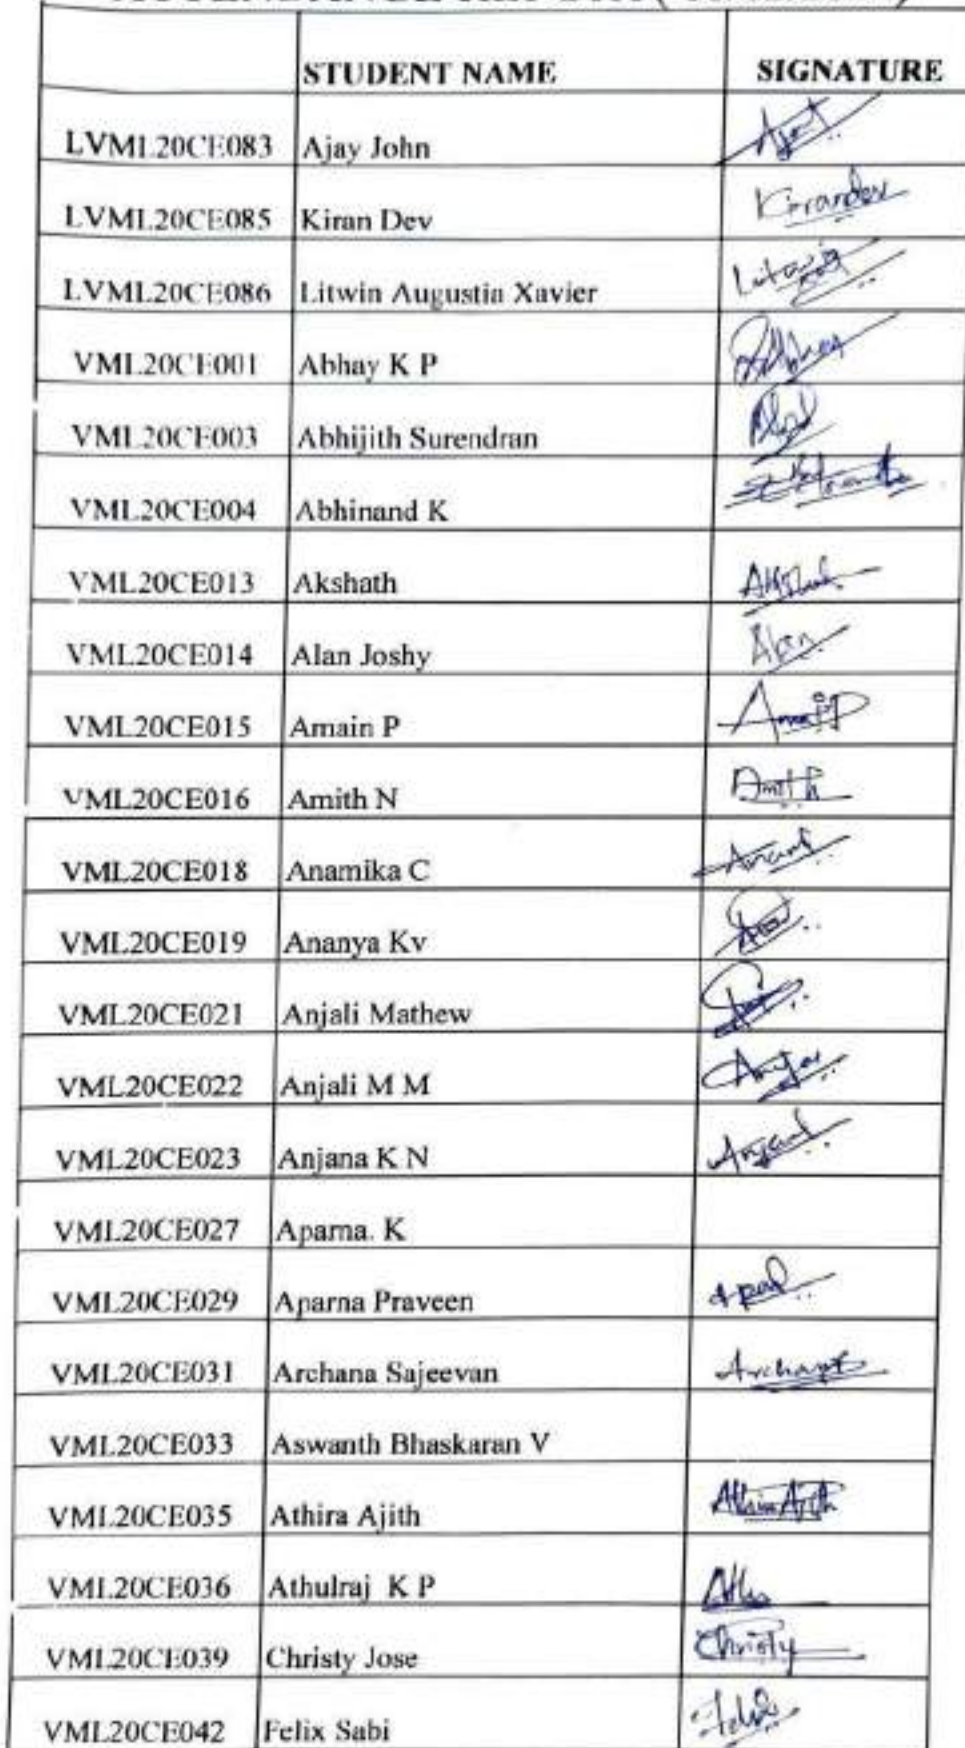 STUDENT NAME SIGNATURE
LVML20CE083 Ajay John
LVML20CE085 Kiran Dev Kirandev
LVML20CE086 Litwin Augustia Xavier
VML20CE001 Abhay K P
VML20CE003 Abhijith Surendran
VML20CE004 Abhinand K
VML20CE013 Akshath
VML20CE014 Alan Joshy Alan
VML20CE015 Amain P
VML20CE016 Amith N Amith
VML20CE018 Anamika C
VML20CE019 Ananya Kv
VML20CE021 Anjali Mathew
VML20CE022 Anjali M M
VML20CE023 Anjana K N
VML20CE027 Aparna. K
VML20CE029 Aparna Praveen
VML20CE031 Archana Sajeevan Archana
VML20CE033 Aswanth Bhaskaran V
VML20CE035 Athira Ajith Athira Ajith
VML20CE036 Athulraj K P
VML20CE039 Christy Jose Christy
VML20CE042 Felix Sabi Felix